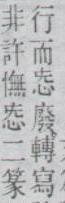 行而怸廢轉寫
非許憮怸二篆